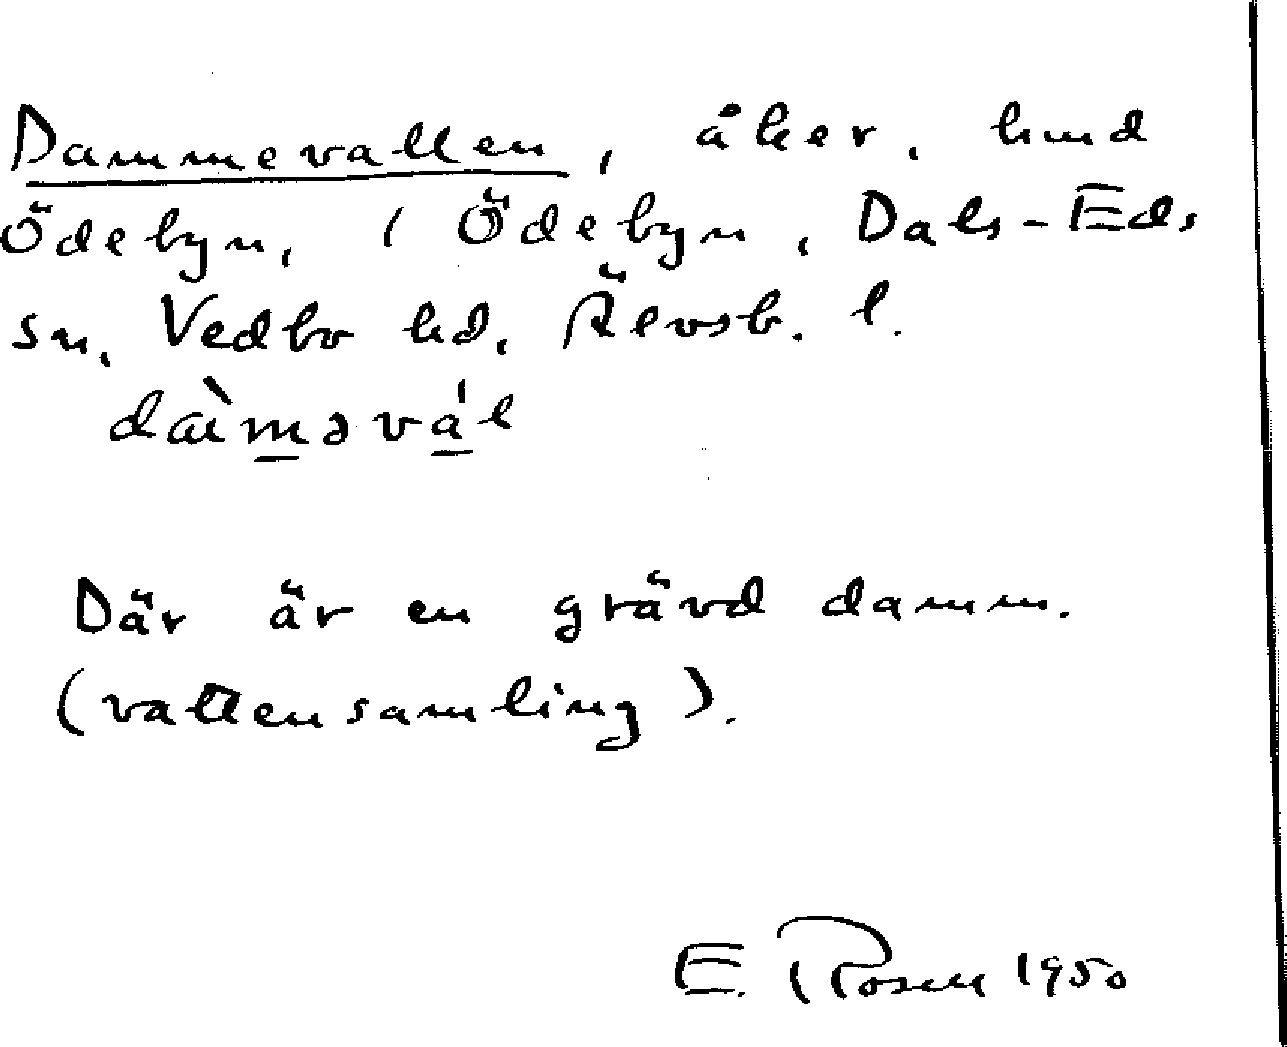 Dammevallen, åker, hmd
Ödebyn, i Ödebyn, Dals-Eds
sn, Vedbo hd, Älvsb. l.
dæ̀məvál
Där är en grävd damm.
(vattensamling).
E. Rosell 1950